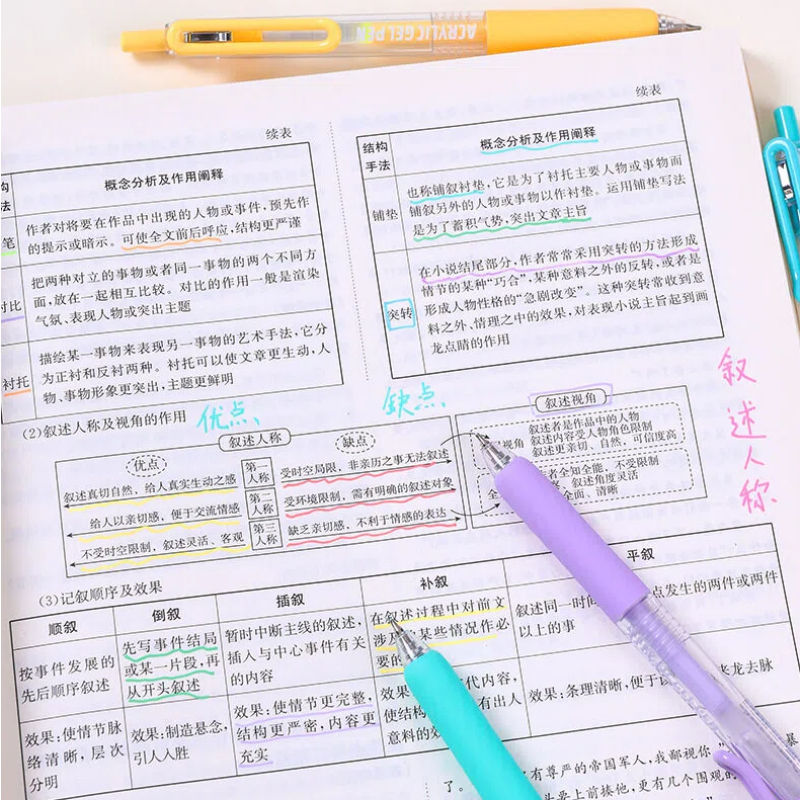 ACRYLIC GEL PEN
续表
概念分析及作用阐释
作者对将要在作品中出现的人物或事件,预先作
的提示或暗示。可使全文前后呼应,结构更严谨
对比
把两种对立的事物或者同一事物的两个不同方
面,放在一起相互比较。对比的作用一般是渲染
气氛、表现人物或突出主题
衬托
描绘某一事物来表现另一事物的艺术手法,它分
为正衬和反衬两种。衬托可以使文章更生动,人
物、事物形象更突出,主题更鲜明
续表
结构
手法
概念分析及作用阐释
铺垫
也称铺叙衬垫,它是为了衬托主要人物或事物而
铺叙另外的人物或事物以作衬垫。运用铺垫写法
是为了蓄积气势,突出文章主旨
突转
在小说结尾部分,作者常常采用突转的方法形成
情节的某种“巧合”,某种意料之外的反转,或者是
形成人物性格的“急剧改变”。这种突转常收到意
料之外、情理之中的效果,对表现小说主旨起到画
龙点睛的作用
(2)叙述人称及视角的作用
优点、
缺点、
叙述人称
叙述人称
优点
缺点
叙述真切自然,给人真实生动之感
第一
人称
受时空局限,非亲历之事无法叙述
给人以亲切感,便于交流情感
第二
人称
受环境限制,需有明确的叙述对象
不受时空限制,叙述灵活、客观
第三
人称
缺乏亲切感,不利于情感的表达
叙述视角
视角
叙述者是作品中的人物
叙述内容受人物角色限制
叙述更亲切、自然,可信度高
全
者全知全能,不受限制
叙述角度灵活
全面、清晰
(3)记叙顺序及效果
顺叙
倒叙
插叙
补叙
平叙
按事件发展的
先后顺序叙述
先写事件结局
或某一片段,再
从开头叙述
暂时中断主线的叙述,
插入与中心事件有关
的内容
在叙述过程中对前文
涉及 某些情况作必
要的
叙述同一时间 点发生的两件或两件
以上的事
效果:使情节脉
络清晰,层次
分明
效果:制造悬念,
引人入胜
效果:使情节更完整,
结构更严密,内容更
充实
效果 代内容,
使结构 有出人
意料的效
效果:条理清晰,便于 来龙去脉
有尊严的帝国军人,我鄙视你
了。 头要上前揍他,更有几个围观的